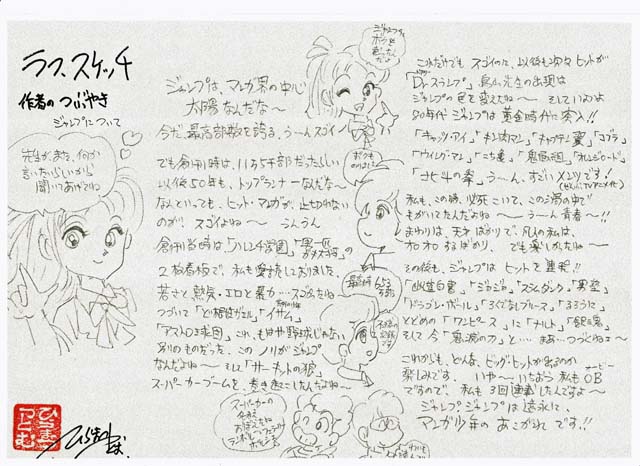 ラフ、スケッチ
作者のつぶやき
ジャンプについて
先生が、また、何か
言ったらしいから
聞いてあげてね
ジャンプは、マンガ界の中心
太陽なんだな〜
今だ、最高部数を誇る、う〜んスゴイ
でも創刊時は、11万5千部だったらしい
以後50年も、トップランナーなんだな〜
なんといっても、ヒット・マンガが、止切れない
のが、スゴイよね〜 うんうん
創刊当時は「ハレンチ学園」「男一匹
ガキ大将」の
2枚看板で、私も愛読しておりました。
若さと熱気・エロと暴力…スゴかったね
つづいて「ど根性ガエル」「
「アストロ球団」これ、もはや野球じゃない
別のものだった。このノリがジャンプ
なんだよね〜 そして「サーキットの狼」
スーパーカーブームを、まき起こしたんだよね〜
スーパーカーの
これだけでもスゴイのに、以後も次々ヒットが
「Dr.スランプ」鳥山先生の出現は
ジャンプの色を変えたね〜 そしていよいよ
80年代ジャンプは黄金時代に突入!!
「キャッツ・アイ」「キン肉マン」「キャプテン翼」「コブラ」
「ウイングマン」「こち亀」「奇面組」「オレンジロード」
「北斗の拳」う〜ん、すごいメンツです!
私も、この時、必死こいて、この渦の中で
もがいてたんだよね〜 う〜ん青春〜!!
まわりは、天才ばかりで、凡人の私は、
オロオロするばかり、でも楽しかたしね〜
その後も、ジャンプはヒットを連発!!
「幽遊白書」「ジョジョ」「スラムダンク」「男塾」
「ドラゴン・ボール」「ろくでなしブルース」「るろうに」
とどめの「ワンピース」に「ナルト」「銀魂」
そして今「鬼滅の刃」と… まあ…つづくねェ〜
これからも、どんな、ビッグ・ヒットが出るのか
楽しみです。いや〜いちおう私もOB
ですので、私も3回連載したんですよ〜
ジャンプ、ジャンプは永遠に、
マンガ少年のあこがれです!!